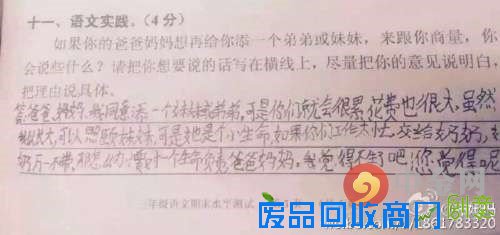 十一、语文实践。(4分)
如果你的爸爸妈妈想再给你添一个弟弟或妹妹，来跟你商量，你
会说些什么？请把你想要说的话写在横线上，尽量把你的意见说明白，
把理由说具体。
答:爸爸、妈妈,我同意添一个妹妹或弟弟,可是你们就会很累,花费也很大,虽然
我长大,可以照顾妹妹,可是她是个小生命,如果你们工作太忙,交给奶奶,
万一不 要对一个生命负责爸爸妈妈。我觉得不生了吧!您觉得呢
三年级语文期末水平测试
废品回收商网
1861783320